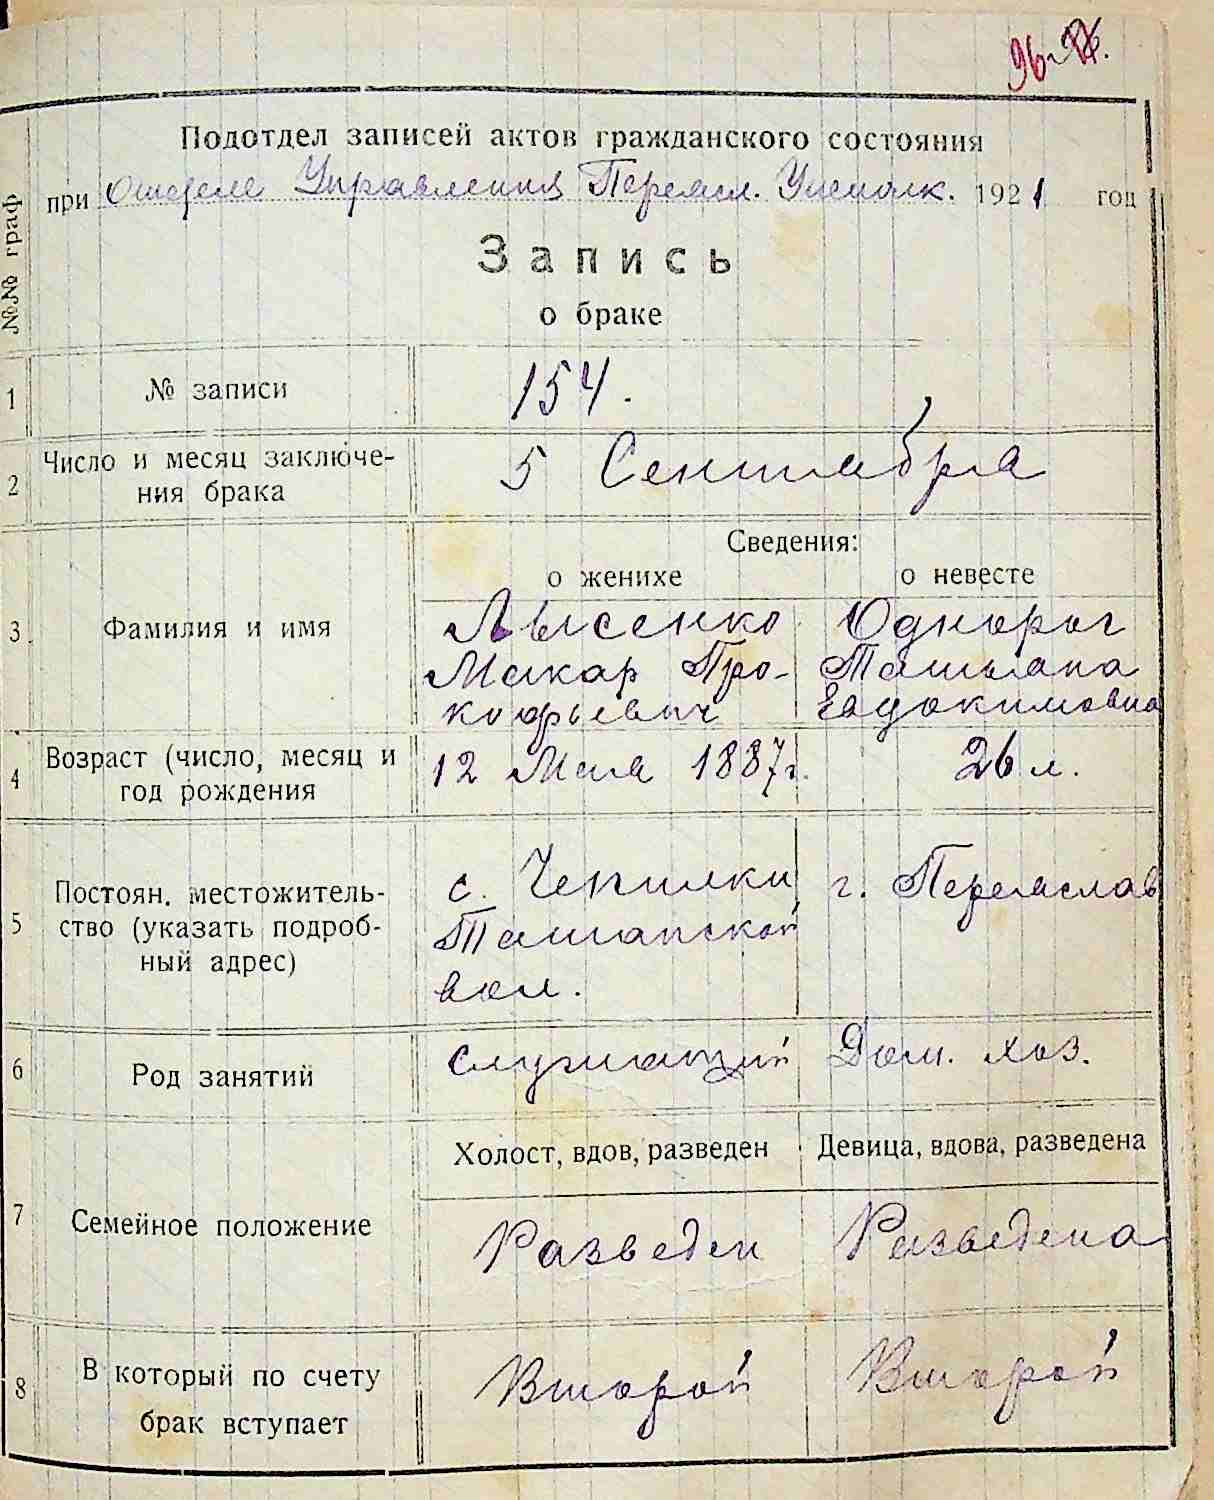 96
Подотдел записей актов гражданского состояния
при Отделе Управления Переясл. 1921 год
№№ граф
Запись
о браке
1 № записи 154.
2 Число и месяц заключе-
ния брака 5 Сентября
Сведения:
о женихе о невесте
3. Фамилия и имя Лысенко Однорог
Макар Про- Татьяна
кофьевич Евдокимовна
4 Возраст (число, месяц и
год рождения 12 Мая 1887г. 26 л.
5 Постоян. местожитель-
ство (указать подроб-
ный адрес) с. Чепилки г. Переяслав
Ташанской
вол.
6 Род занятий Служащий Дом. хоз.
Холост, вдов, разведен Девица, вдова, разведена
7 Семейное положение Разведен Разведена
8 В который по счету
брак вступает Второй Второй